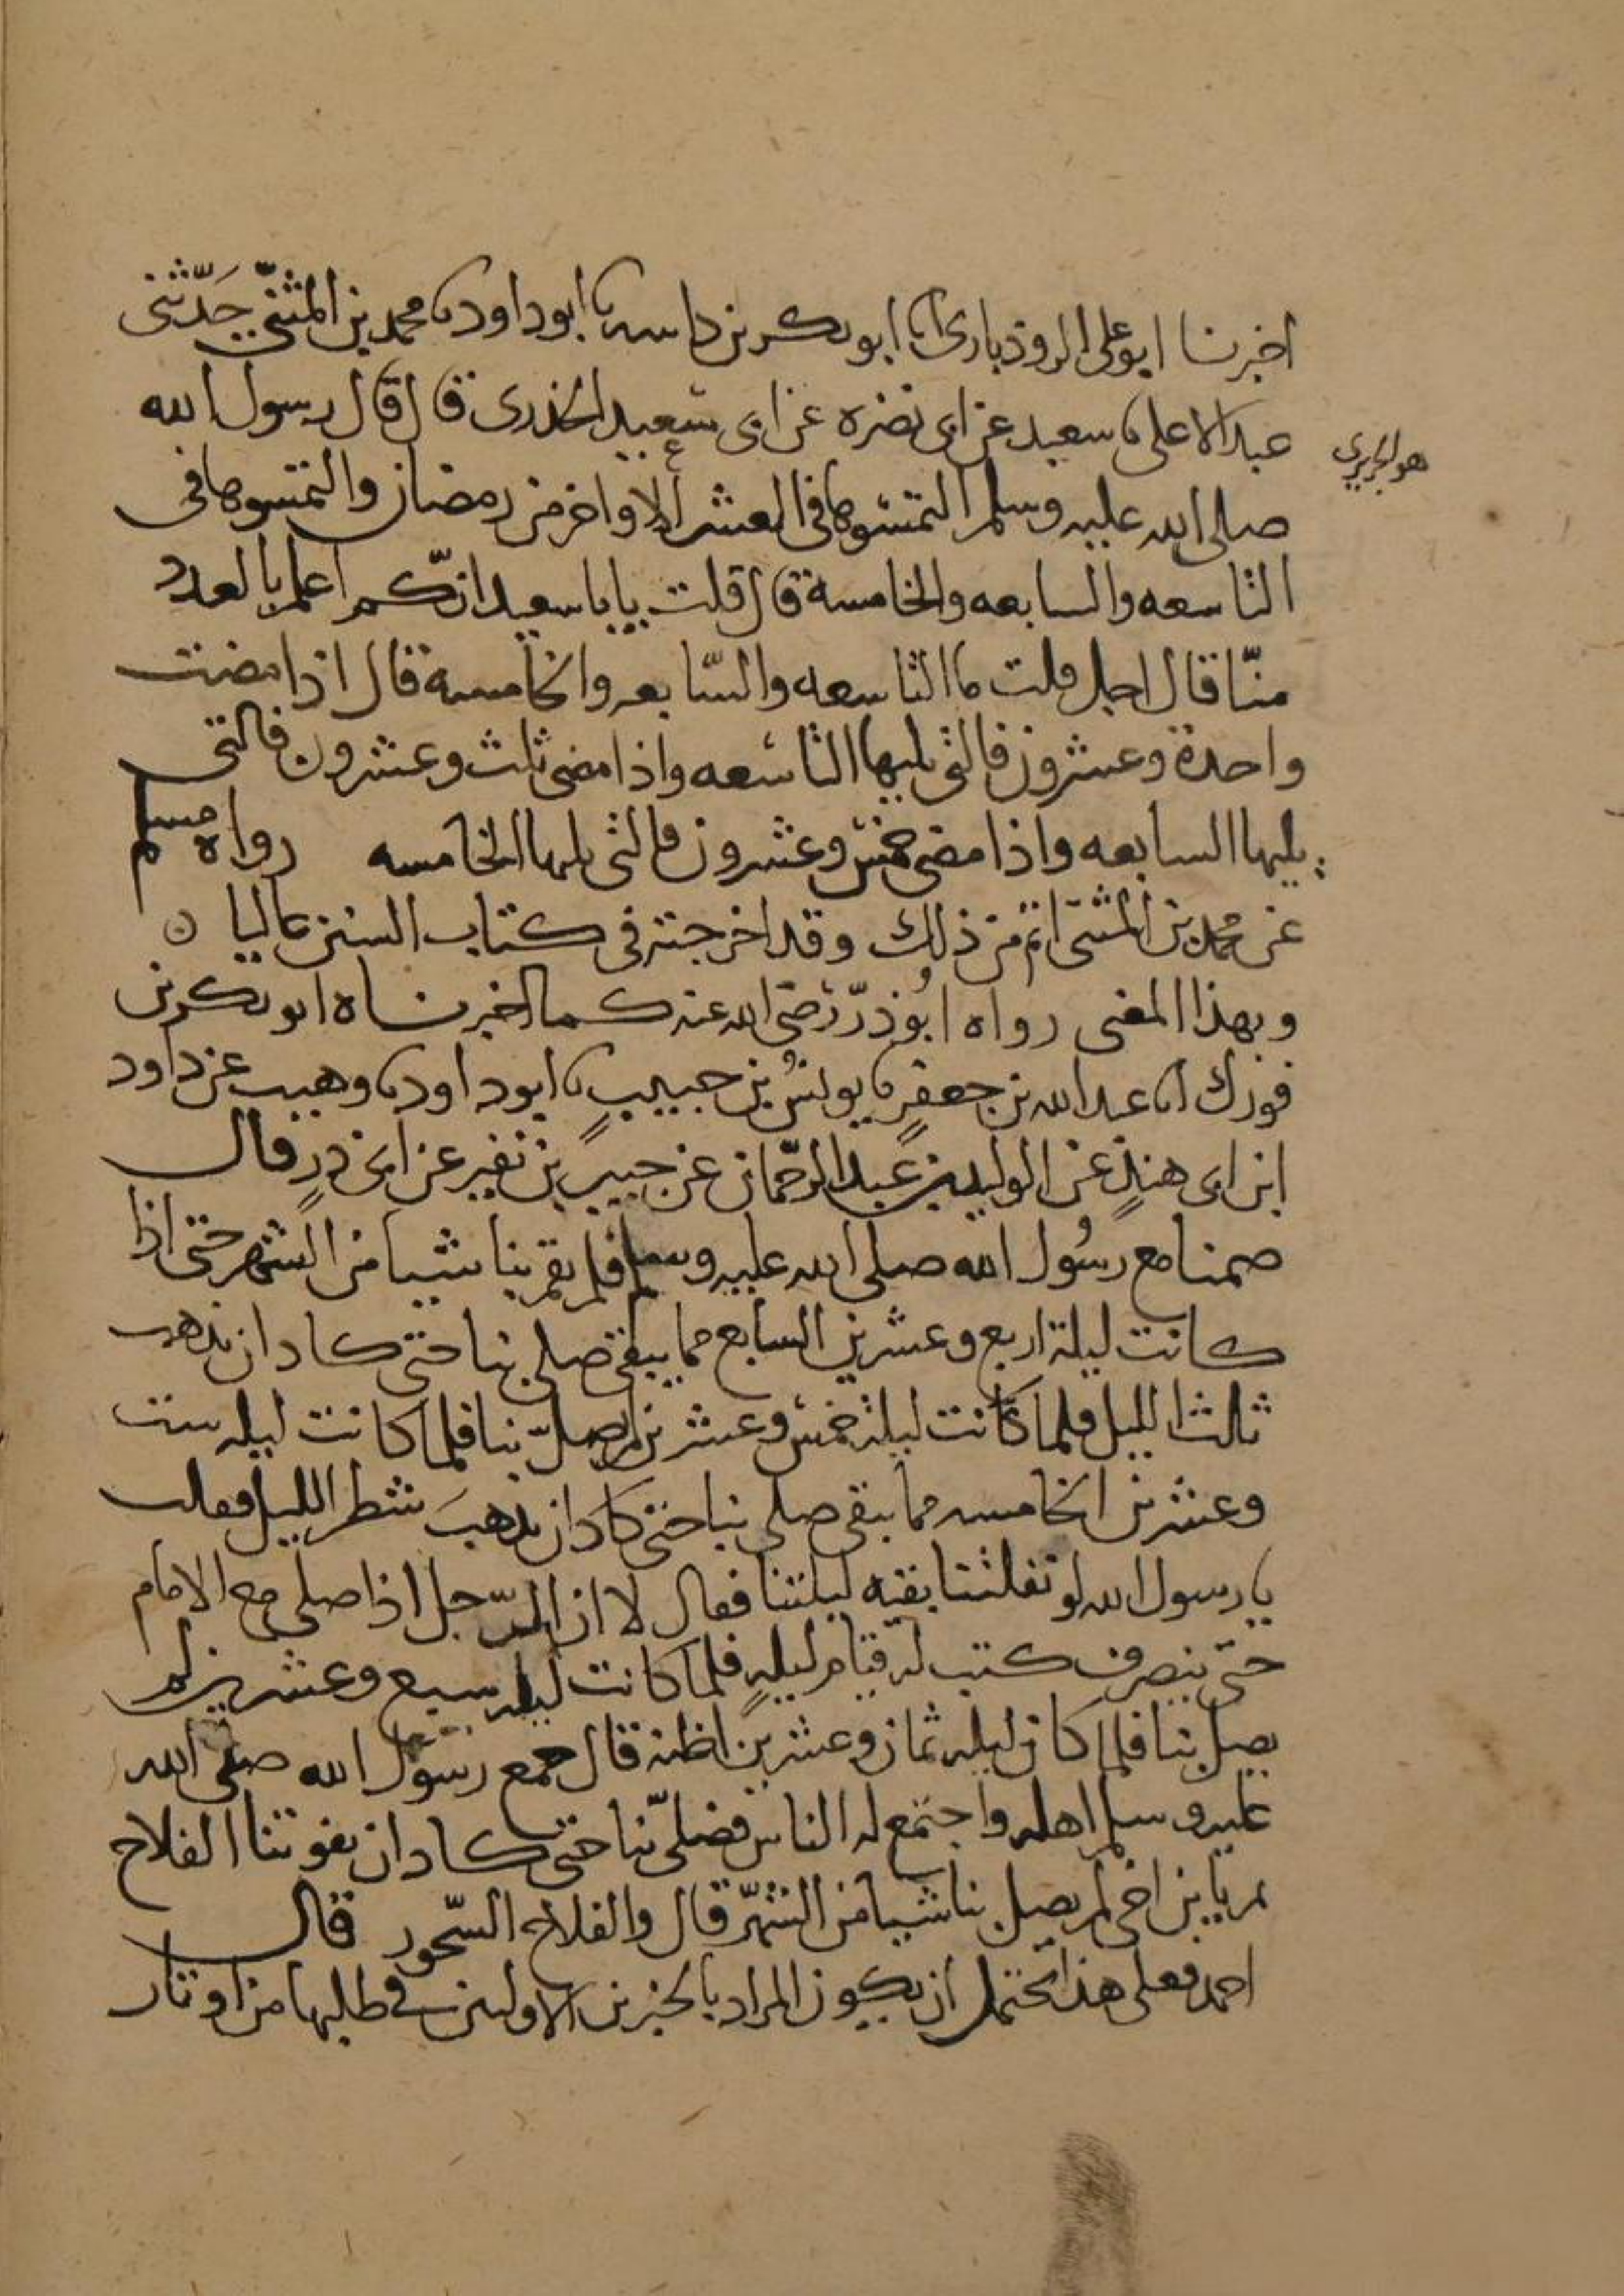 اخبرنا ابو على الروذبارى انا ابو بكر بن داسه نا ابو داود نا محمد بن المثنى حدّثنى
عبد الاعلى نا سعيد عن ابى نضره عن ابى سعيد الخدرى قال قال رسول الله
هو الجريرى
صلى الله عليه وسلم التمسوها فى العشر الاواخر من رمضان والتمسوها فى
التاسعه والسابعه والخامسة قال قلت يابا سعيد انكم اعلم بالعدد
منّا قال اجل قلت ما التاسعه والسّابعه والخامسة قال اذا مضت
واحدة وعشرون فالتى يليها التاسعه واذا مضى ثلث وعشرون فالتى
يليها السابعه واذا مضى خمس وعشرون فالتى يليها الخامسه رواه مسلم
عن محمد بن المثنى اتم من ذلك وقد اخرجته فى كتاب السنن عاليا ن
وبهذا المعنى رواه ابوذرّ رضى الله عنه كما اخبرناه ابو بكر بن
فورك انا عبد الله بن جعفر نا يونس بن حبيب نا ابو داود نا وهيب عن داود
ابن ابى هند عن الوليد بن عبد الرحمان عن جبير بن نفير عن ابى ذر قال
صمنا مع رسول الله صلى الله عليه وسلم فلم يقم بنا شيا من الشهر حتى اذا
كانت ليلة اربع وعشرين السابع مما يبقى صلى بنا حتى كاد ان يذهب
ثلث الليل فلما كانت ليلة خمس وعشرين لم يصلّ بنا فلما كانت ليله ست
وعشرين الخامسه مما يبقى صلى بنا حتى كاد ان يذهب شطر الليل فقلت
يا رسول الله لو نفلتنا بقيه ليلتنا فقال لا ان الرّجل اذا صلى مع الامام
حتى ينصرف كتب له قيام ليله فلما كانت ليله سبع وعشرين لم
يصل بنا فلما كان ليله ثمان وعشرين اظنه قال جمع رسول الله صلى الله
عليه وسلم اهله واجتمع له الناس فصلى بنا حتى كاد ان يفوتنا الفلاح
ثم يا بن اخى لم يصل بنا شيا من الشهر قال والفلاح السّحور قال
احمد فعلى هذا يحتمل ان يكون المراد بالخبرين الاولين فى طلبها من اوتار